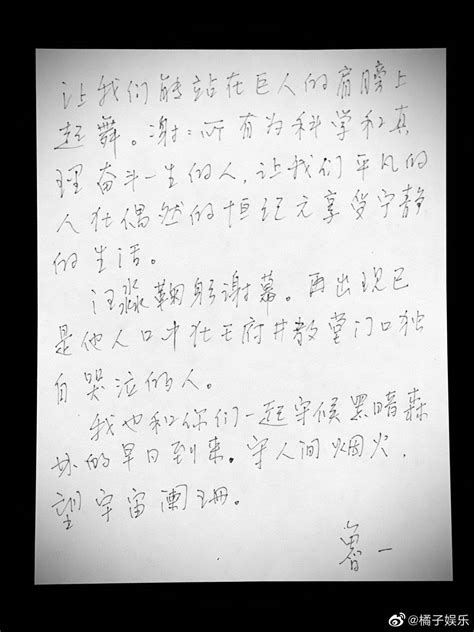 让我们能站在巨人的肩膀上
起舞。谢谢所有为科学和真
理奋斗一生的人,让我们平凡的
人在偶然的恒纪元享受宁静
的生活。
汪淼鞠躬谢幕。再出现已
是他人口中在王府井教堂门口独
自哭泣的人。
我也和你们一起守候黑暗森
林的早日到来。守人间烟火,
望宇宙阑珊。
鲁一
@橘子娱乐